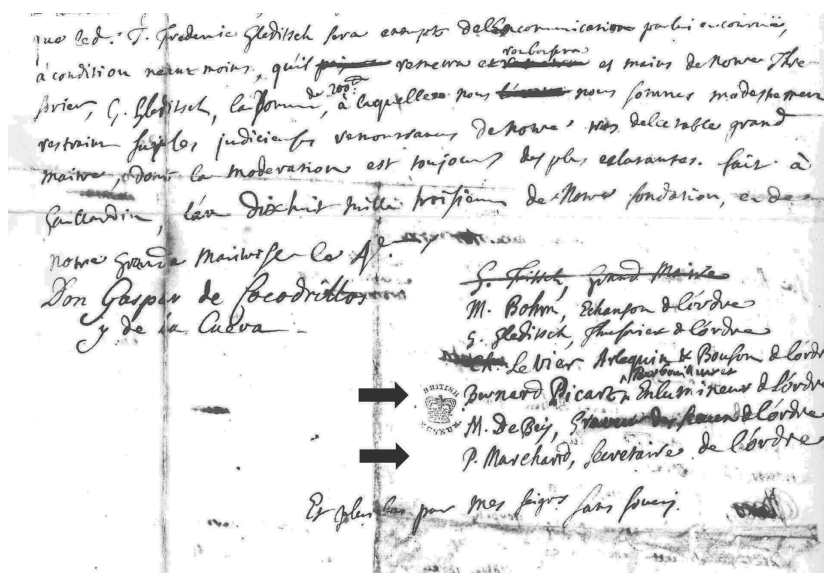 que led. J. Frederic Gleditsch sera exempt de l'Excommunication par lui encourüe,
à condition neantmoins, qu'il remettra et remboursera es mains de notre Thre-
sorier, G. Gleditsch, la somme de 200 à laquelle nous nous sommes modestement
restraint les judicieuses remonstrances de notre tres delectable grand
maitre, dont la moderation est toujours des plus eclatantes. fait à
Gaillardin, l'an dixhuit mille troisieme de Notre fondation, et de
notre grande Maitrise le
Don Gaspar de Cocodrillos
y de la Cueva
G. Fritsch, Grand Maitre
M. Bohm, Echanson de l'ordre
G. Gleditsch, Thresorier de l'ordre
Ch. Levier Arlequin & Boufon de l'ordre
Barbouilleur &
Bernard Picart, Enlumineur de l'ordre
BRITISH MUSEUM
M. De Bey, Graveur des sceaux de l'ordre
P. Marchand, Secretaire de l'ordre
Et plus bas par Mes seigrs. sans souci.